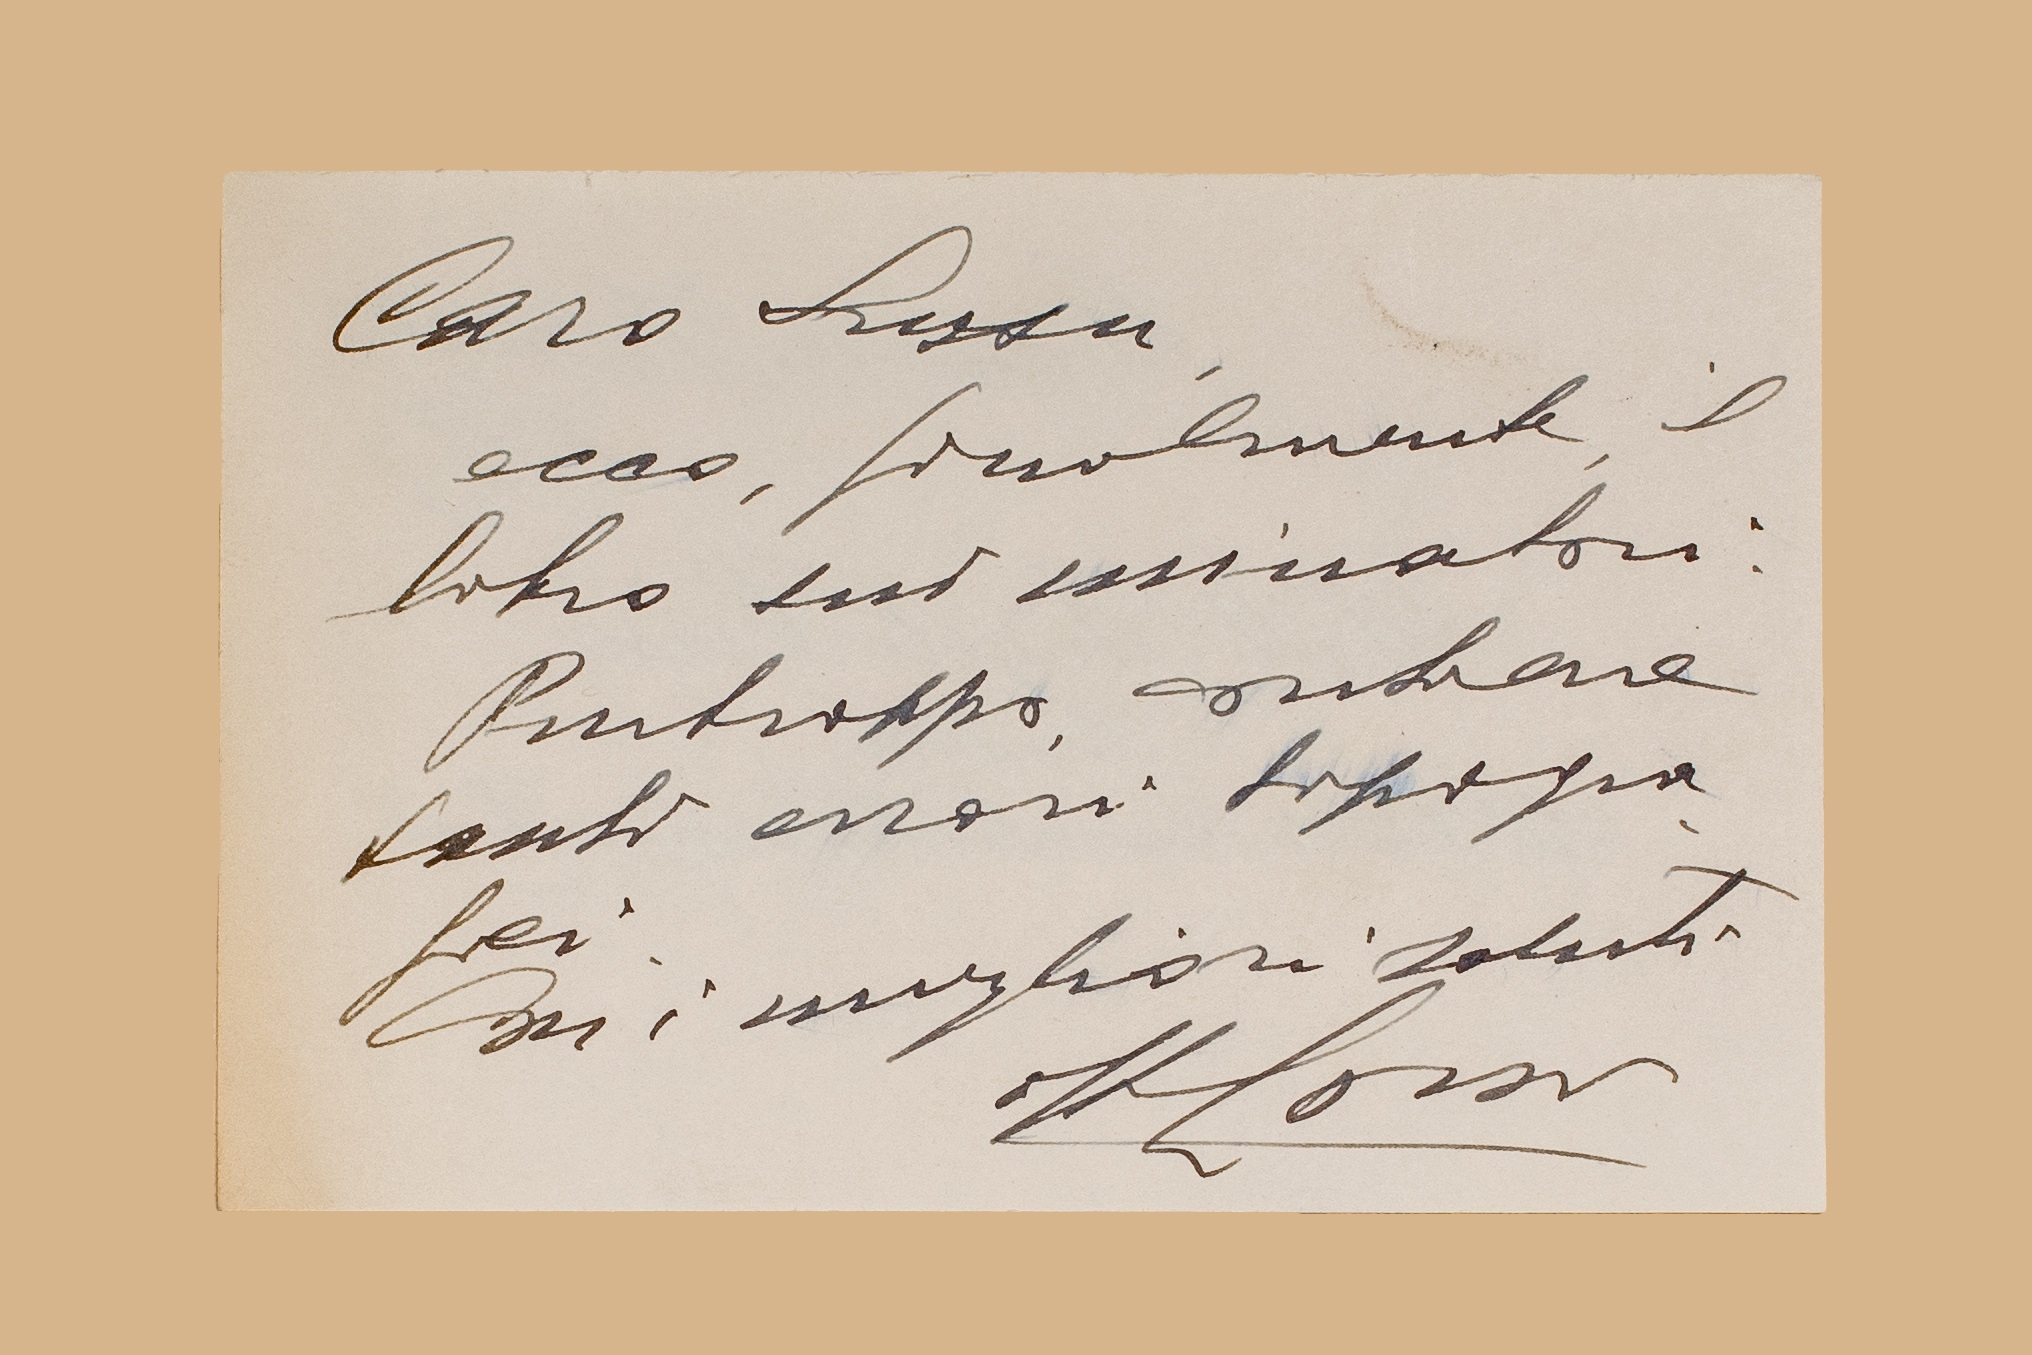 Caro Lussu,
ecco, finalmente, il
libro sui minatori.
Purtroppo, contiene
tanti errori tipogra
fici.
Con i migliori saluti